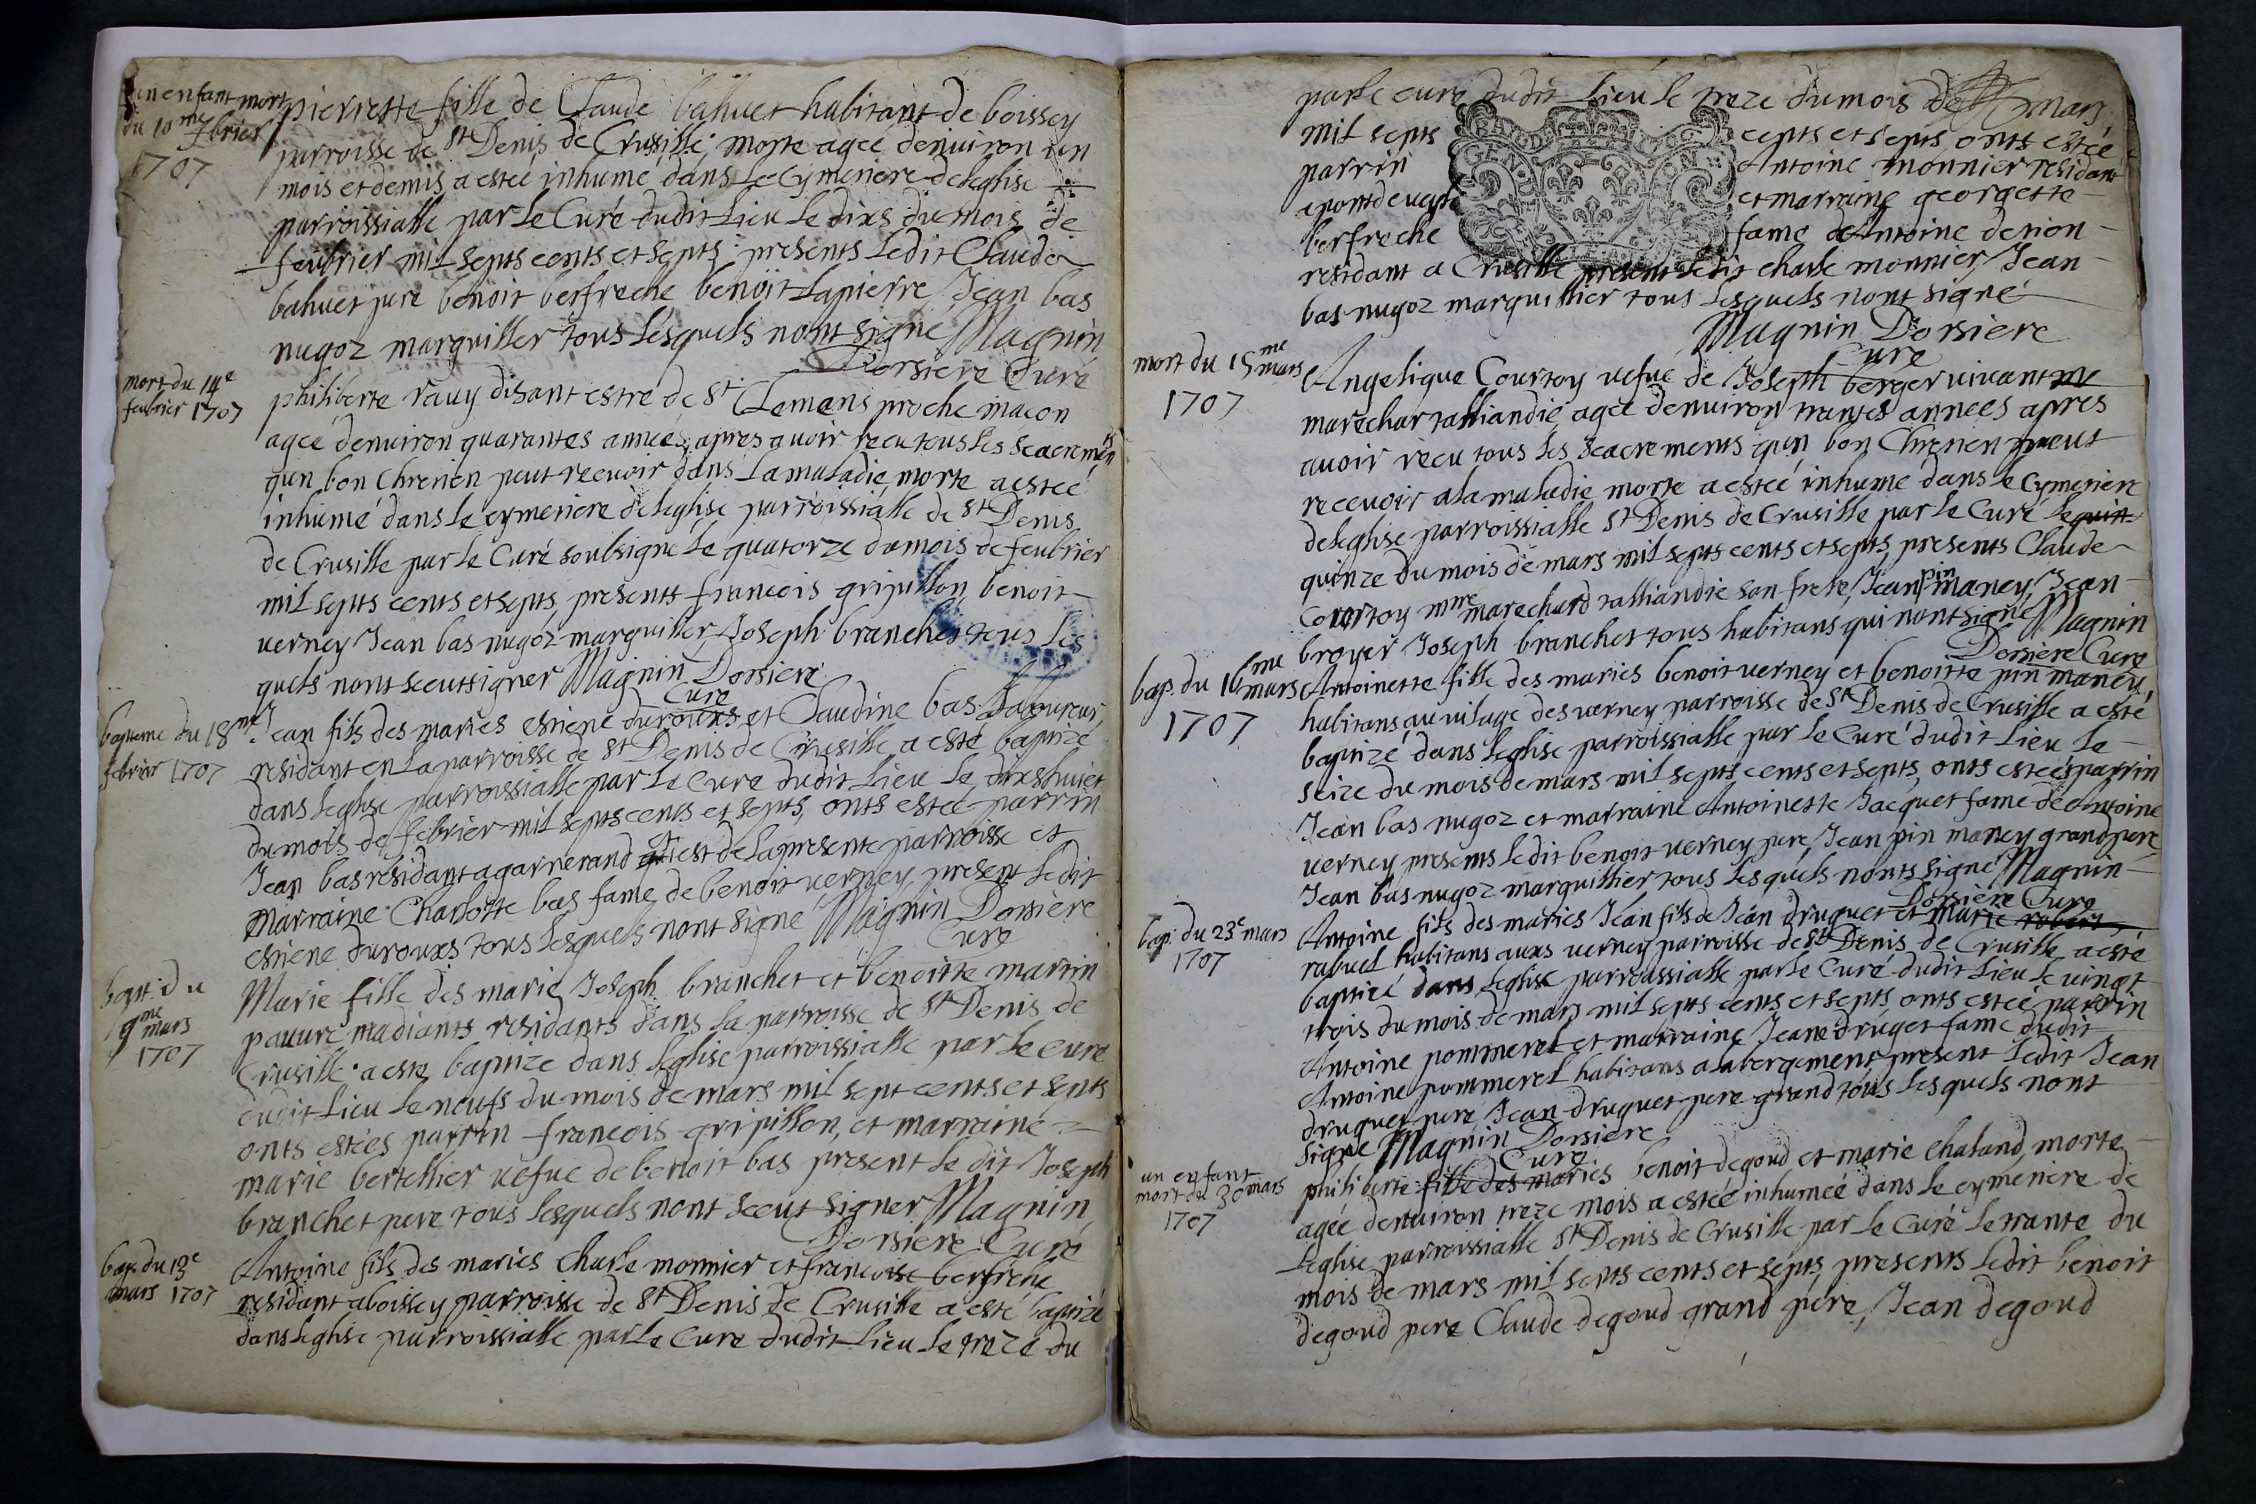 un enfant mort
du 10me
febrier
1707
pierrette fille de Claude bahuet habitant de boissey
parroisse de St Denis de Crusille morte agee denuiron un
mois et demis a estee inhumé dans Le Cymetiere de leglise
parroissialle par Le Curé dudit Lieu Le dixs du mois de
feubrier mil septs cents et septs presents Ledit Claude
bahuet pere benoit berfreche benoit Lapierre Jean bas
nugoz marguillier tous Lesquels nont signe Magnin
Dorsiere Curé
mort du 14e
feubrier 1707
philiberte rauy disant estre de St Clemens proche macon
agee denuiron quarantes annees, apres auoir recu tous Les Seacrements
qun bon Chretien peut receuoir dans La maladie, morte a estee
inhumé dans le cymetiere de leglise parroissialle de St Denis
de Crusille par le Curé soubsigne Le quatorze du mois de feubrier
mil septs cents et septs, presents francois gripillon, benoit
verney Jean bas nugoz marguillier, Joseph branchet tous Les
quels nont sceut signer Magnin Dorsiere
Cure
bapteme du 18me
febrier 1707
Jean fils des maries estiene durouxs et Claudine bas Laboureur
residant en La parroisse de St Denis de Crusille a esté baptizé
dans leglise parroissialle par Le Cure dudit Lieu Le dixshuiet
du mois de febrier mil septs cents et septs, onts estee parrin
Jean bas residant a garnerand qui est de La presente parroisse et
Marraine Charlotte bas fame de benoit verney, present Ledit
estiene durouxs tous Lesquels nont signe Magnin Dorsiere
Cure
bapt. du
9me
mars
1707
Marie fille des marie Joseph branchet et benoitte martin
pauure madiants residants dans la parroisse de St Denis de
Crusille a este baptize dans Leglise parroissialle par Le Cure
dudit Lieu Le neufs du mois de mars mil sept cents et septs
onts estées parrin francois gripillon, et marraine
marie bertellier uefue de benoit bas present Le dit Joseph
branchet pere tous Lesquels nont sceut signer Magnin
Dorsiere Curé
bap. du 13e
mars 1707
Antoine fils des maries Charle monnier et francoise berfreche
residant a boissey parroisse de St Denis de Crusille a esté baptizé
dans leglise parroissialle par Le Cure dudit Lieu Le treze du
par le cure dudit Lieu Le treze du mois de mars
mil septs cents et septs onts estée
parrin Antoine monnier residant
a pont de ueyle et marraine georgette
berfreche fame de Antoine denion
residant a Crusille present Ledit charle monnier, Jean
bas nugoz marguillier tous Lesquels nont signé
Magnin Dorsiere
Cure
mort du 15me
mars
1707
Angelique Courtoy uefue de Joseph berger viuant me
marechar talliandié agee denuiron trantes annees apres
auoir recu tous les Seacrements qun bon Chretien peut
receuoir a la maladie morte a estée inhumé dans le Cymetiere
de leglise parroissialle St Denis de Crusille par le Curé le quin
quinze du mois de mars mil septs cents et septs, presents Claude
Courtoy mtre marechard talliandie son frere, Jean pin maney, Jean
broyer Joseph branchet tous habitans qui nont signe Magnin
Dorsiere Cure
bap. du 16me
mars
1707
Antoinette fille des maries benoit verney et benoitte pin maney,
habitans au vilage des verney parroisse de St Denis de Crusille a esté
baptizé dans leglise parroissialle par Le Curé dudit Lieu Le
seize du mois de mars mil septs cents et septs, onts estées parrin
Jean bas nugoz et marraine Antoinette Jacquet fame de Antoine
verney presents ledit benoit verney pere, Jean pin maney grand pere,
Jean bas nugoz marguillier tous Lesquels nonts signé Magnin
Dorsiere Cure
bap. du 23e mars
1707
Antoine fils des maries Jean fils de Jean druguet et marie robert,
rabuel habitans auxs verney parroisse de St Denis de Crusille a este
baptizé dans Leglise parroissialle par Le Curé dudit Lieu Le vingt
trois du mois de mars mil septs cents et septs onts estée parrin
Antoine pommeret et marraine Jeane druget fame dudit
Antoine pommeret habitans a labergement present Ledit Jean
druguet pere, Jean druguet pere grand tous Lesquels nont
signe Magnin Dorsiere
Cure
un enfant
mort du 30 mars
1707
philiberte fille des maries benoit degoud et marie Chaland, morte
agée denuiron treze mois a estée inhumeé dans Le cymetiere de
Leglise parroissialle St Denis de Crusille par le Curé Le trante du
mois de mars mil septs cents et septs presents Ledit benoit
degoud pere Claude degoud grand pere, Jean degoud